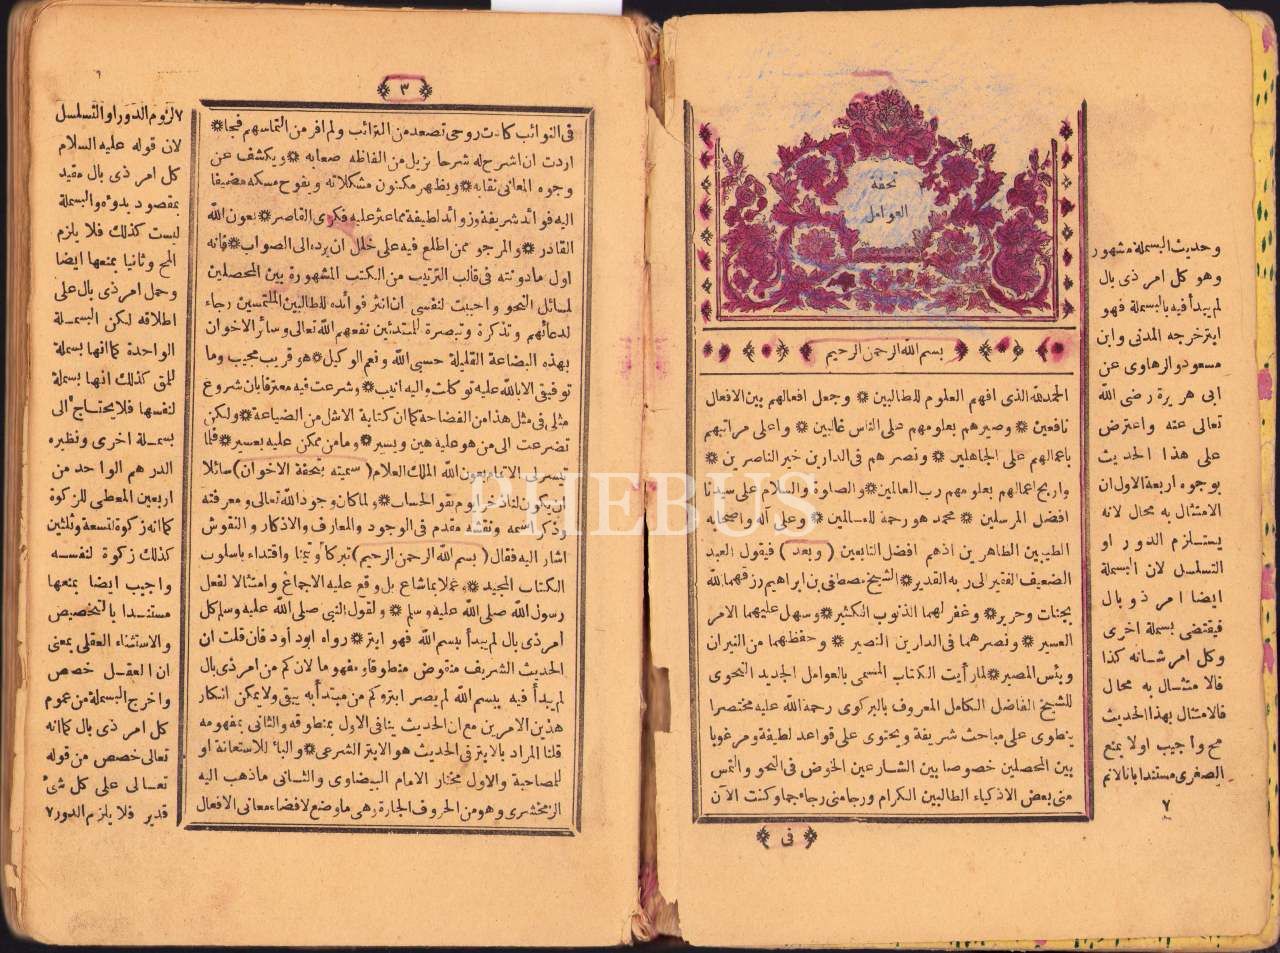 تحفة
العوامل
بسم الله الرحمن الرحيم
الحمدلله الذى افهم العلوم للطالبين ❋ وجعل افعالهم بين الافعال
نافعين ❋ وصيرهم بعلومهم على الناس غالبين ❋ واعلى مراتبهم
باعمالهم على الجاهلين ❋ ونصرهم فى الدارين خير الناصرين ❋
واربح اعمالهم بعلومهم رب العالمين ❋ والصلوة والسلام على سيدنا
افضل المرسلين ❋ محمد هو رحمة للعالمين ❋ وعلى آله واصحابه
الطيبين الطاهرين اذهم افضل التابعين ( وبعد ) فيقول العبد
الضعيف الفقير الى ربه القدير ❋ الشيخ مصطفى بن ابراهيم رزقهما الله
بجنات وحرير ❋ وغفر لهما الذنوب الكثير ❋ وسهل عليهما الامر
العسير ❋ ونصرهما فى الدارين النصير ❋ وحفظهما من النيران
وبئس المصير ❋ لما رأيت الكتاب المسمى بالعوامل الجديد النحوى
للشيخ الفاضل الكامل المعروف بالبركوى رحمة الله عليه مختصرا
ينطوى على مباحث شريفة ويحتوى على قواعد لطيفة ومرغوبا
بين المحصلين خصوصا بين الشارعين الخوض فى النحو والتمس
منى بعض الاذكياء الطالبين الكرام ورجا منى رجاء جما وكنت الآن
فى
وحديث البسملة مشهور
وهو كل امر ذى بال
لم يبدأ فيه بالبسملة فهو
ابتر خرجه المدنى وابن
مسعود والرهاوى عن
ابى هريرة رضى الله
تعالى عنه واعترض
على هذا الحديث
بوجوه اربعة الاول ان
الامتثال به محال لانه
يستلزم الدور او
التسلسل لان البسملة
ايضا امر ذو بال
فيقتضى بسملة اخرى
وكل امر شانه كذا
فالامتثال به محال
فالامتثال بهذا الحديث
مح واجيب اولا بمنع
الصغرى مستندا بانا لانم
٧
٣
فى النوائب كادت روحى تصعد من الترائب ولم افر من التماسهم فيجا ❋
اردت ان اشرح له شرحا يزيل من الفاظه صعابه ❋ ويكشف عن
وجوه المعانى نقابه ❋ ويظهر مكنون مشكلاته ويفوح مسكه مضيفا
اليه فوائد شريفة وزوائد لطيفة مما عثر عليه فكرى القاصر ❋ بعون الله
القادر ❋ والمرجو ممن اطلع فيه على خلل ان يرده الى الصواب ❋ فانه
اول مادونته فى قالب الترتيب من الكتب المشهورة بين المحصلين
لمسائل النحو واحببت لنفسى ان انثر فوائده للطالبين الملتمسين رجاء
لدعائهم وتذكرة وتبصرة للمبتدئين نفعهم الله تعالى وسائر الاخوان
بهذه البضاعة القليلة حسبى الله ونعم الوكيل ❋ هو قريب مجيب وما
توفيقى الا بالله عليه توكلت واليه انيب ❋ وشرعت فيه معترفا بان شروع
مثلى فى مثل هذا من الفضاحة كما ان كتابة الاشل من الضياعة ❋ ولكن
تضرعت الى من هو عليه هين ويسير ❋ وما من ممكن عليه بعسير ❋ فلما
تيسر لى الاتمام بعون الله الملك العلام ( سميته بتحفة الاخوان ) سائلا
ان يكون لنا ذخرا يوم يقوم الحساب ❋ ولما كان وجود الله تعالى ومعرفته
وذكر اسمه ونقشه مقدم فى الوجود والمعارف والاذكار والنقوش
اشار اليه فقال ( بسم الله الرحمن الرحيم ) تبركا وتيمنا واقتداء باسلوب
الكتاب المجيد ❋ وعملا بما شاع بل وقع عليه الاجماع وامتثالا لفعل
رسول الله صلى الله عليه وسلم ❋ ولقول النبى صلى الله عليه وسلم كل
امر ذى بال لم يبدأ ببسم الله فهو ابتر ❋ رواه ابو داود فان قلت ان
الحديث الشريف منقوض منطوقا ومفهوما لان كم من امر ذى بال
لم يبدأ فيه ببسم الله لم يصر ابتر وكم من مبتدأ به يبقى ولا يمكن انكار
هذين الامرين مع ان الحديث ينافى الاول بمنطوقه والثانى بمفهومه
قلنا المراد بالابتر فى الحديث هو الابتر الشرعى ❋ والباء للاستعانة او
للمصاحبة والاول مختار الامام البيضاوى والثانى ما ذهب اليه
الزمخشرى وهو من الحروف الجارة وهى ما وضع لافضاء معانى الافعال
٧ لزوم الدور او التسلسل
لان قوله عليه السلام
كل امر ذى بال مقيد
بمقصود بدوئه والبسملة
ليست كذلك فلا يلزم
المح وثانيا بمنعها ايضا
وحمل امر ذى بال على
اطلاقه لكن البسملة
الواحدة كما انها بسملة
للمق كذلك انها بسملة
لنفسها فلا يحتاج الى
بسملة اخرى ونظيره
الدرهم الواحد من
اربعين المعطى للزكوة
كما انه زكوة لتسعة وثلثين
كذلك زكوة لنفسه
واجيب ايضا بمنعها
مستندا بالتخصيص
والاستثناء العقلى بمعنى
ان العقل خصص
واخرج البسملة من عموم
كل امر ذى بال كما انه
تعالى خصص من قوله
تعالى على كل شئ
قدير فلا يلزم الدور ٧
PHEBUS